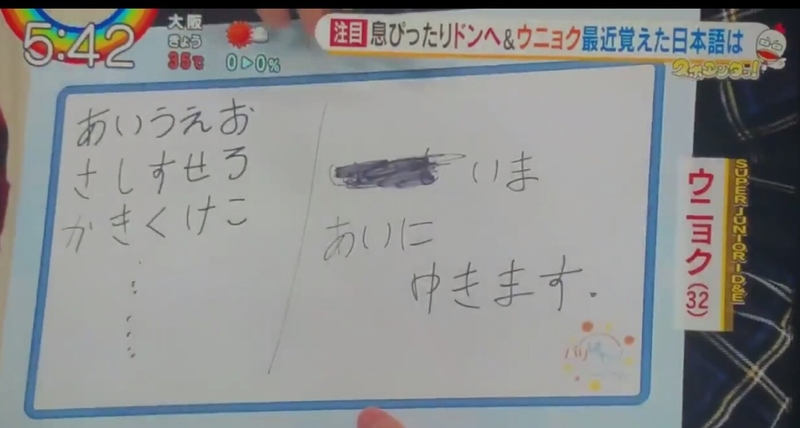 5:42
大阪
きょう
35℃ 0▶0%
注目 息ぴったりドンヘ&ウニョク最近覚えた日本語は
あいうえお
さしすせろ
かきくけこ
いま
あいに
ゆきます.
SUPER JUNIOR D&E
ウニョク(32)